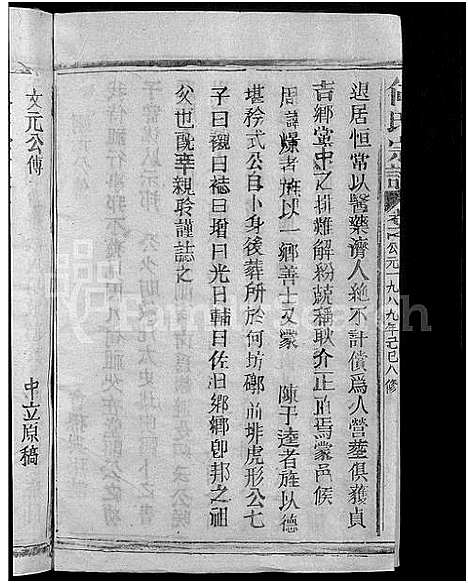 何氏宗譜 卷之 公元一九八九年己巳八修
退居恒常以醫藥濟人絶不計償爲人營塟俱蓡貞
吉鄉黨中之排難解紛兢稱耿介正直焉蒙邑候
周諱爃者旌以一鄉善士又蒙 陳于逵者旌以德
堪矜式公自卜身後葬所於何坊鄉前排虎形公七
子曰襯曰誌曰增曰光曰輔曰佐曰鄉鄉卽邦之祖
父也旣幸親聆謹誌之
文元公傳
中立原稿
FamilySearch